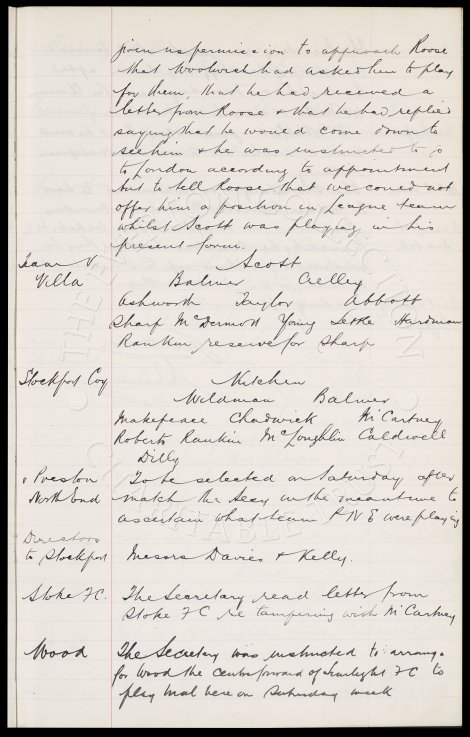 given us permission to approach Roose
that Woolwich had asked him to play
for them, that he had received a
letter from Roose & that he had replied
saying that he would come down to
see him & he was instructed to go
to London according to appointment
but to tell Roose that we could not
offer him a position in League team
whilst Scott was playing in his
present form.
Team V Scott
Villa Balmer Crelley
Ashworth Taylor Abbott
Sharp McDermott Young Settle Hardman
Rankin reserve for Sharp
Stockport Coy Kitchen
Wildman Balmer
Makepeace Chadwick McCartney
Roberts Rankin McLoughlin Caldwell
Dilly
v Preston To be selected on Saturday after
North End match the Secy in the meantime to
ascertain what team P N E were playing
Directors
to Stockport Messrs Davies & Kelly.
Stoke FC. The Secretary read letter from
Stoke FC re tampering with McCartney
Wood The Secretary was instructed to arrange
for Wood the centre forward of FC to
play trial here on Saturday week
THE COLLECTION
CHARITABLE TRUST